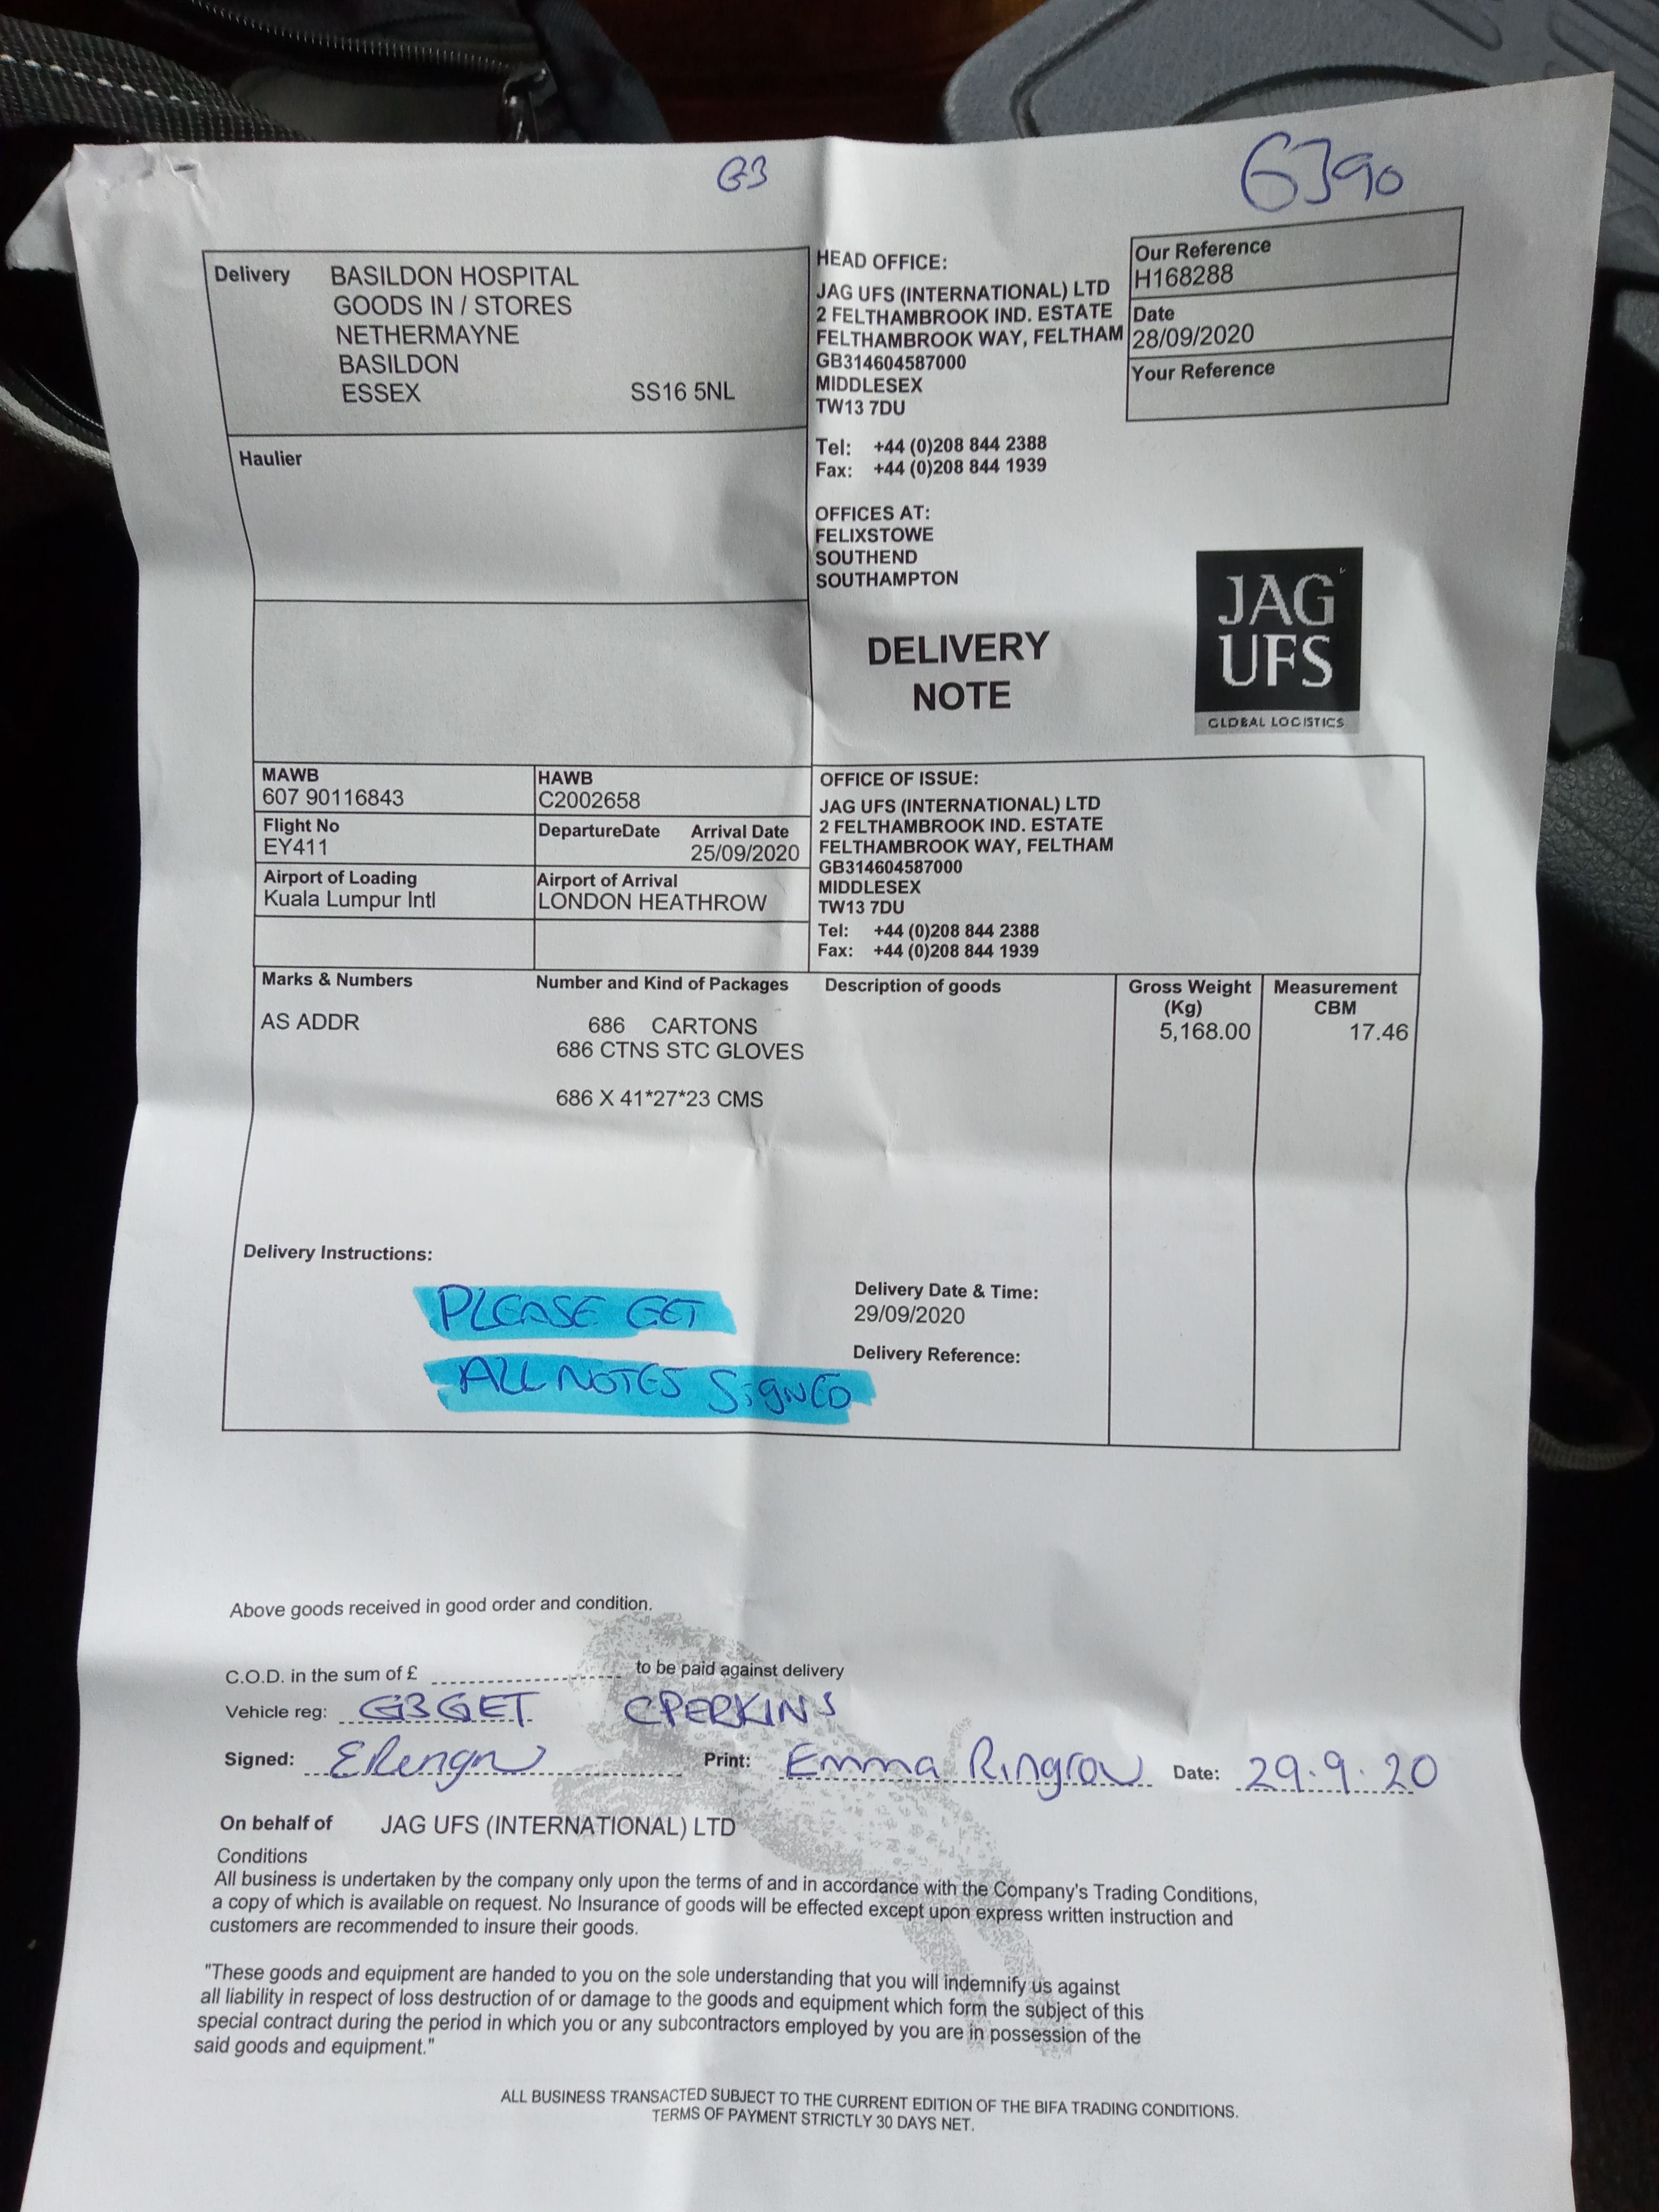 G3
G390
Delivery BASILDON HOSPITAL
GOODS IN / STORES
NETHERMAYNE
BASILDON
ESSEX SS16 5NL
Haulier
HEAD OFFICE:
JAG UFS (INTERNATIONAL) LTD
2 FELTHAMBROOK IND. ESTATE
FELTHAMBROOK WAY, FELTHAM
GB314604587000
MIDDLESEX
TW13 7DU
Tel: +44 (0)208 844 2388
Fax: +44 (0)208 844 1939
OFFICES AT:
FELIXSTOWE
SOUTHEND
SOUTHAMPTON
Our Reference
H168288
Date
28/09/2020
Your Reference
DELIVERY
NOTE
JAG
UFS
GLOBAL LOGISTICS
MAWB HAWB
607 90116843 C2002658
Flight No DepartureDate Arrival Date
EY411 25/09/2020
Airport of Loading Airport of Arrival
Kuala Lumpur Intl LONDON HEATHROW
OFFICE OF ISSUE:
JAG UFS (INTERNATIONAL) LTD
2 FELTHAMBROOK IND. ESTATE
FELTHAMBROOK WAY, FELTHAM
GB314604587000
MIDDLESEX
TW13 7DU
Tel: +44 (0)208 844 2388
Fax: +44 (0)208 844 1939
Marks & Numbers Number and Kind of Packages Description of goods Gross Weight (Kg) Measurement CBM
AS ADDR 686 CARTONS 5,168.00 17.46
686 CTNS STC GLOVES
686 X 41*27*23 CMS
Delivery Instructions:
PLEASE GET
ALL NOTES SIGNED
Delivery Date & Time:
29/09/2020
Delivery Reference:
Above goods received in good order and condition.
C.O.D. in the sum of £ to be paid against delivery
Vehicle reg: G3GET CPERKINS
Signed: Print: Emma Date: 29.9.20
On behalf of JAG UFS (INTERNATIONAL) LTD
Conditions
All business is undertaken by the company only upon the terms of and in accordance with the Company's Trading Conditions,
a copy of which is available on request. No Insurance of goods will be effected except upon express written instruction and
customers are recommended to insure their goods.
"These goods and equipment are handed to you on the sole understanding that you will indemnify us against
all liability in respect of loss destruction of or damage to the goods and equipment which form the subject of this
special contract during the period in which you or any subcontractors employed by you are in possession of the
said goods and equipment."
ALL BUSINESS TRANSACTED SUBJECT TO THE CURRENT EDITION OF THE BIFA TRADING CONDITIONS.
TERMS OF PAYMENT STRICTLY 30 DAYS NET.